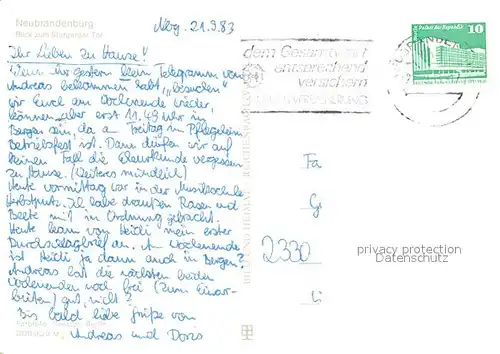 Neubrandenburg
Blick zum Stargarder Tor
Nbg. 21.9.83
Ihr Lieben zu Hause!
Wenn Ihr gestern kein Telegramm von
Andreas bekommen habt, "besuchen"
wir Euch am Wochenende wieder,
können aber erst 11.49 Uhr in
Bergen sein, da am Freitag im Pflegeheim
Betriebsfest ist. Dann dürfen wir auf
keinen Fall die Urkunde vergessen
zu Hause. (Weiteres mündlich)
Heute vormittag war in der Musikschule
Herbstputz. Ich habe draußen Rasen und
Beete mit in Ordnung gebracht.
Heute kam von Heidi mein erster
Durchschlagbrief an. Am Wochenende
ist Heidi ja dann auch in Bergen?
Andreas hat die nächsten beiden
Wochenenden noch frei (zum Einar-
beiten) gut, nicht?
Bis bald liebe Grüße von
Andreas und Doris
dem Gesamtwert
entsprechend
versichern
VERSICHERUNG
Palast der Republik
10
DDR
Fa
G
2330
Li
privacy protection
Datenschutz